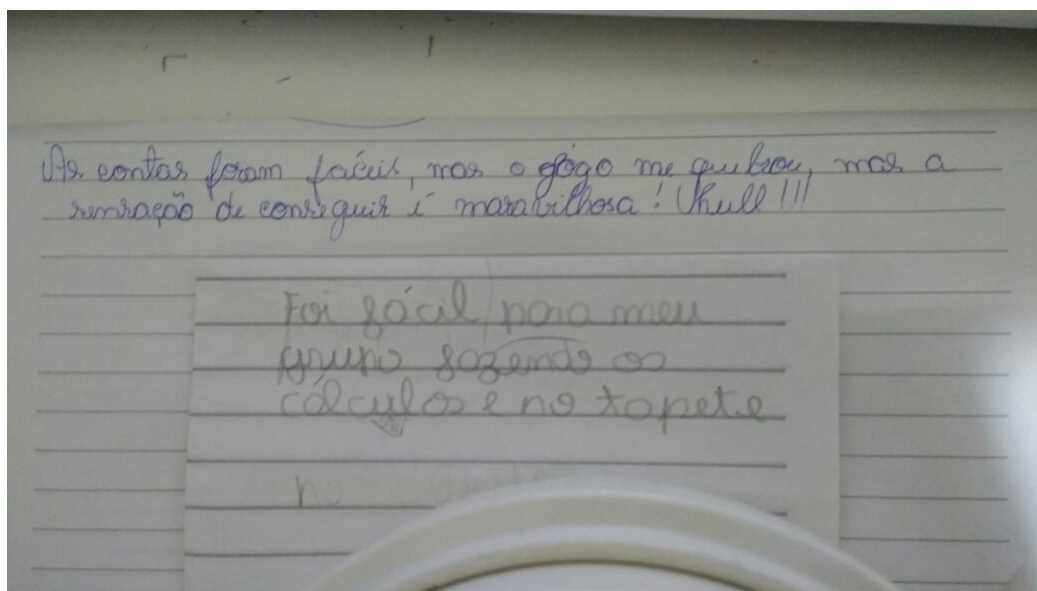 As contas foram fáceis, mas o gógo me quebrou, mas a
sensação de conseguir é maravilhosa! Uhull!!!
Foi fácil para meu
grupo fazendo os
cálculos e no tapete
no